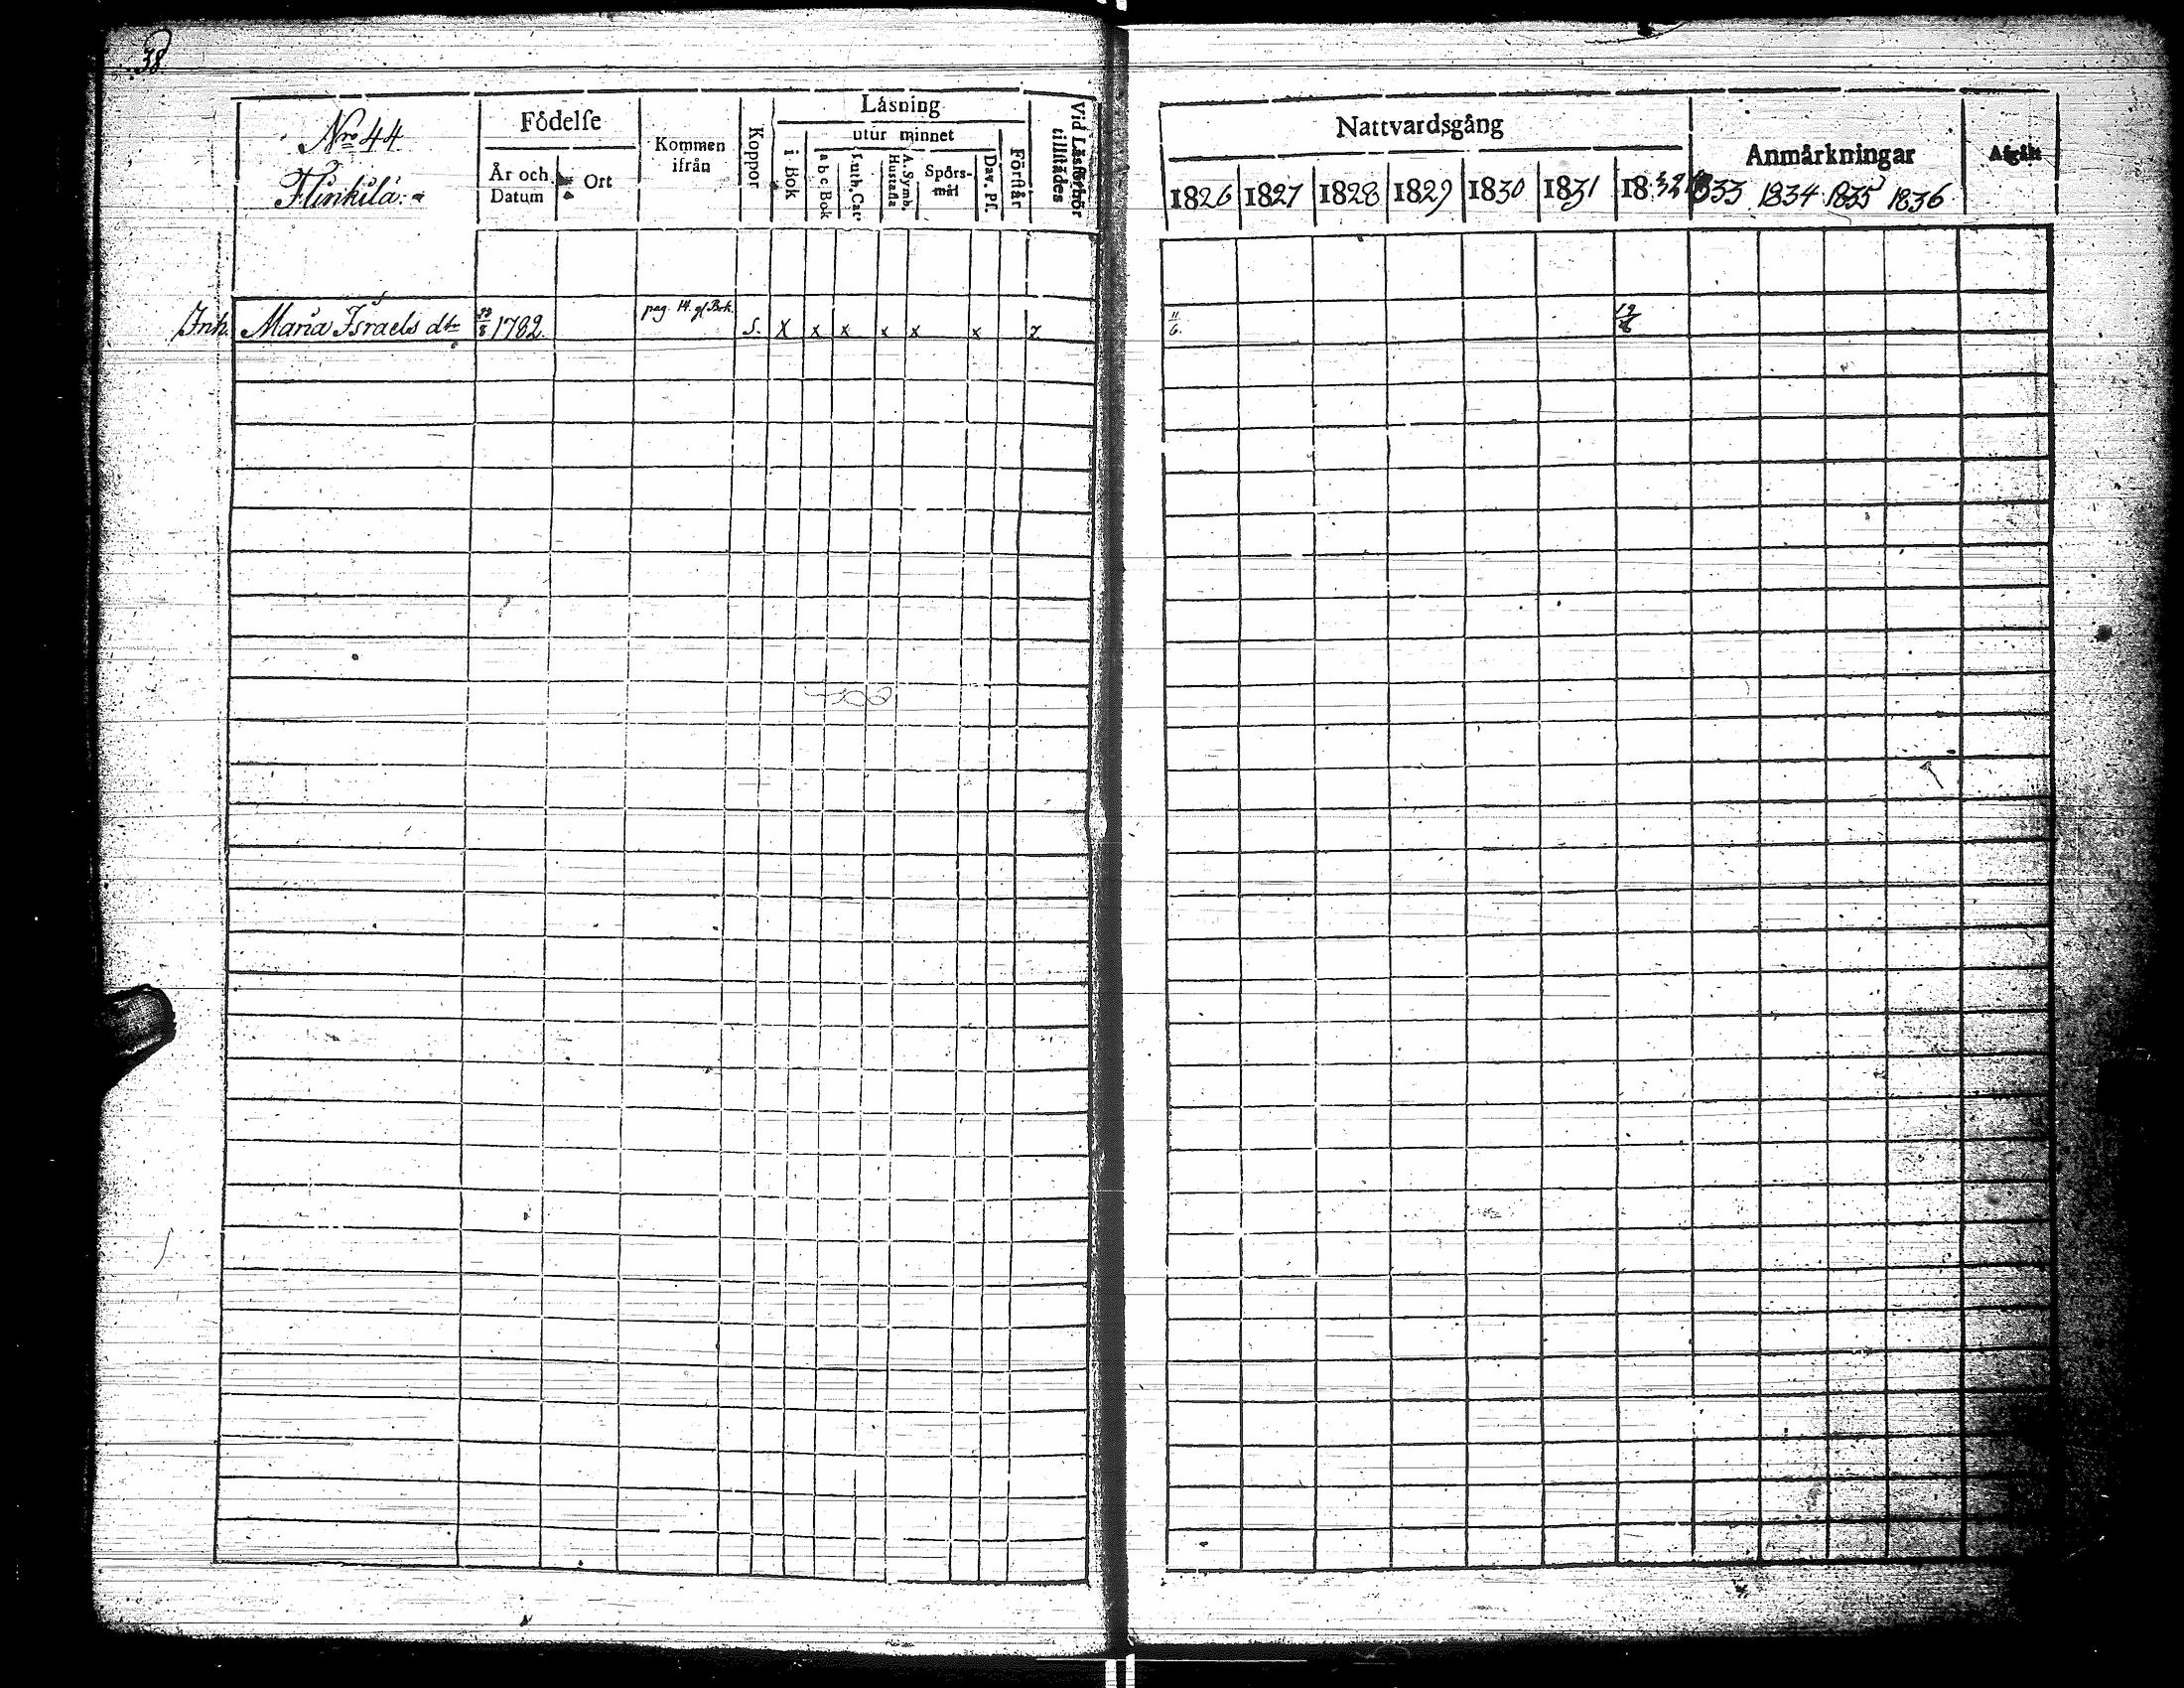 38
Nro 44
Flinkilä
Födelse
År och Datum
Ort
Kommen ifrån
Koppor
Låsning
i Bok
utur minnet
a b c Bok
Luth. Cat.
A. Symb. Hustafla
Spörs-mål
Dav. Pf.
Förstår
Vid Läsförhör tillstådes
Nattvardsgång
1826 1827 1828 1829 1830 1831 1832
Anmårkningar
1833 1834 1835 1836
Afgått
Inh. Maria Israels dtr 8 1782. pag. 14. gl. Bok. S. X x x x x x 11/6.